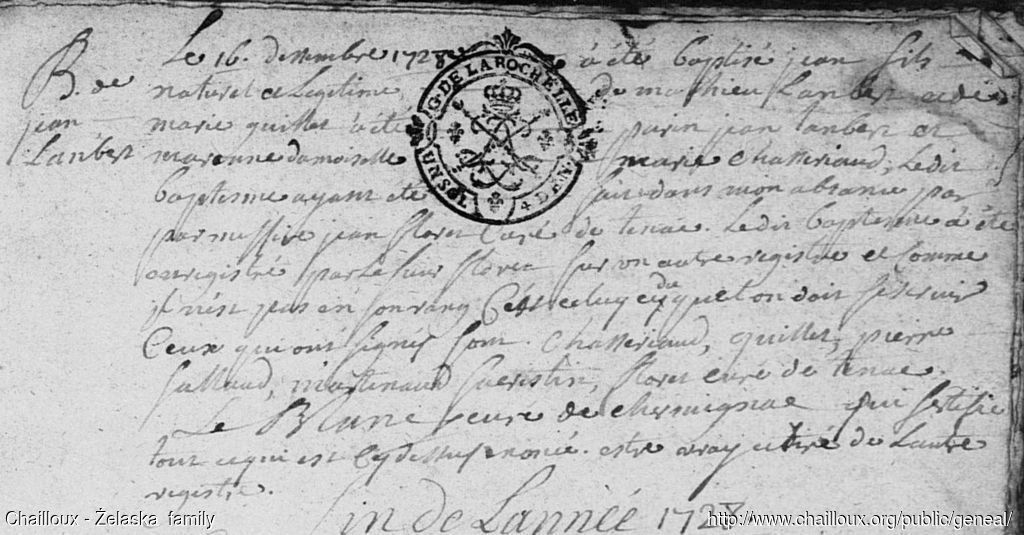 B. de
jean
Lanbert
Le 16. dessembre 1728 à été baptisé jean fils
naturel et Legitime de mathieu Lanbert et de
marie quillet à été parin jean lanbert et
marenne damoiselle marie Chasseriaud, Ledit
baptesme ayant été fait dans mon absance par
par missive jean floret Curé de tenac. Ledit baptesme à été
enregistré par Le sieur floret sur un autre registre et comme
il n'est pas en son rang C'est celuy cy que l'on doit se servir
Ceux qui ont signés sont. Chasseriaud, quillet, pierre
martinaud floret curé de tenac.
Le Blanc curé de chermignac qui sertifie
tout ce qui est Cy dessus enoncé. estre vray et tiré de Lautre
registre.
fin de Lannée 1728
G. DE LA ROCHELLE
Chailloux - Żelaska family
http://www.chailloux.org/public/geneal/